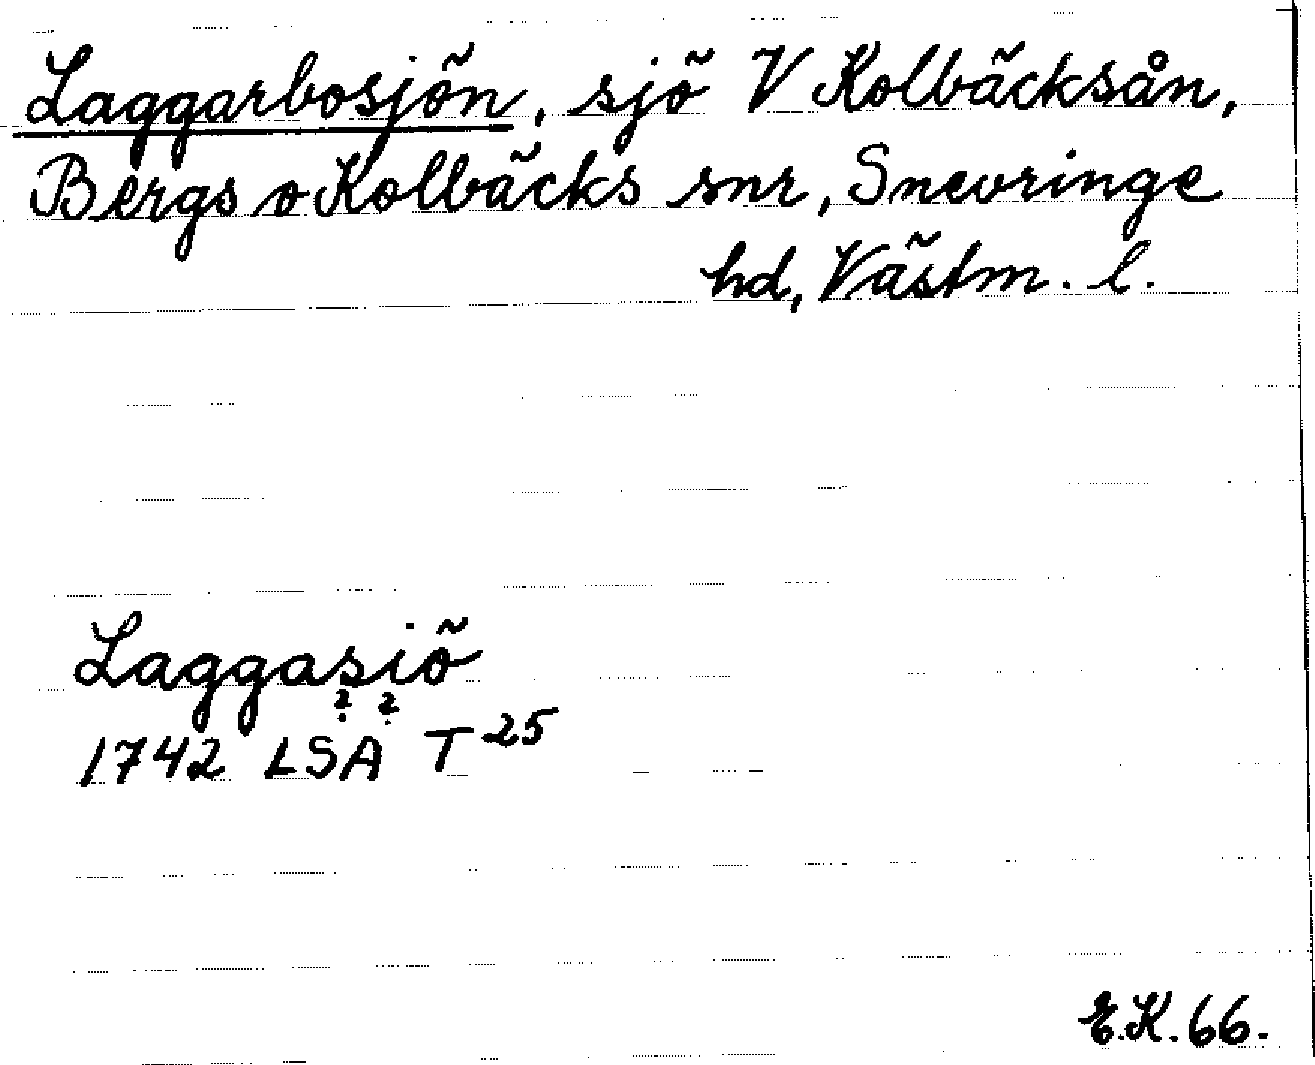 Laggarbosjön, sjö V Kolbäcksån,
Bergs o Kolbäcks snr, Snevringe
hd, Västm. l.
Laggasiö
? ?
1742 LSA T 25
E.K. 66.